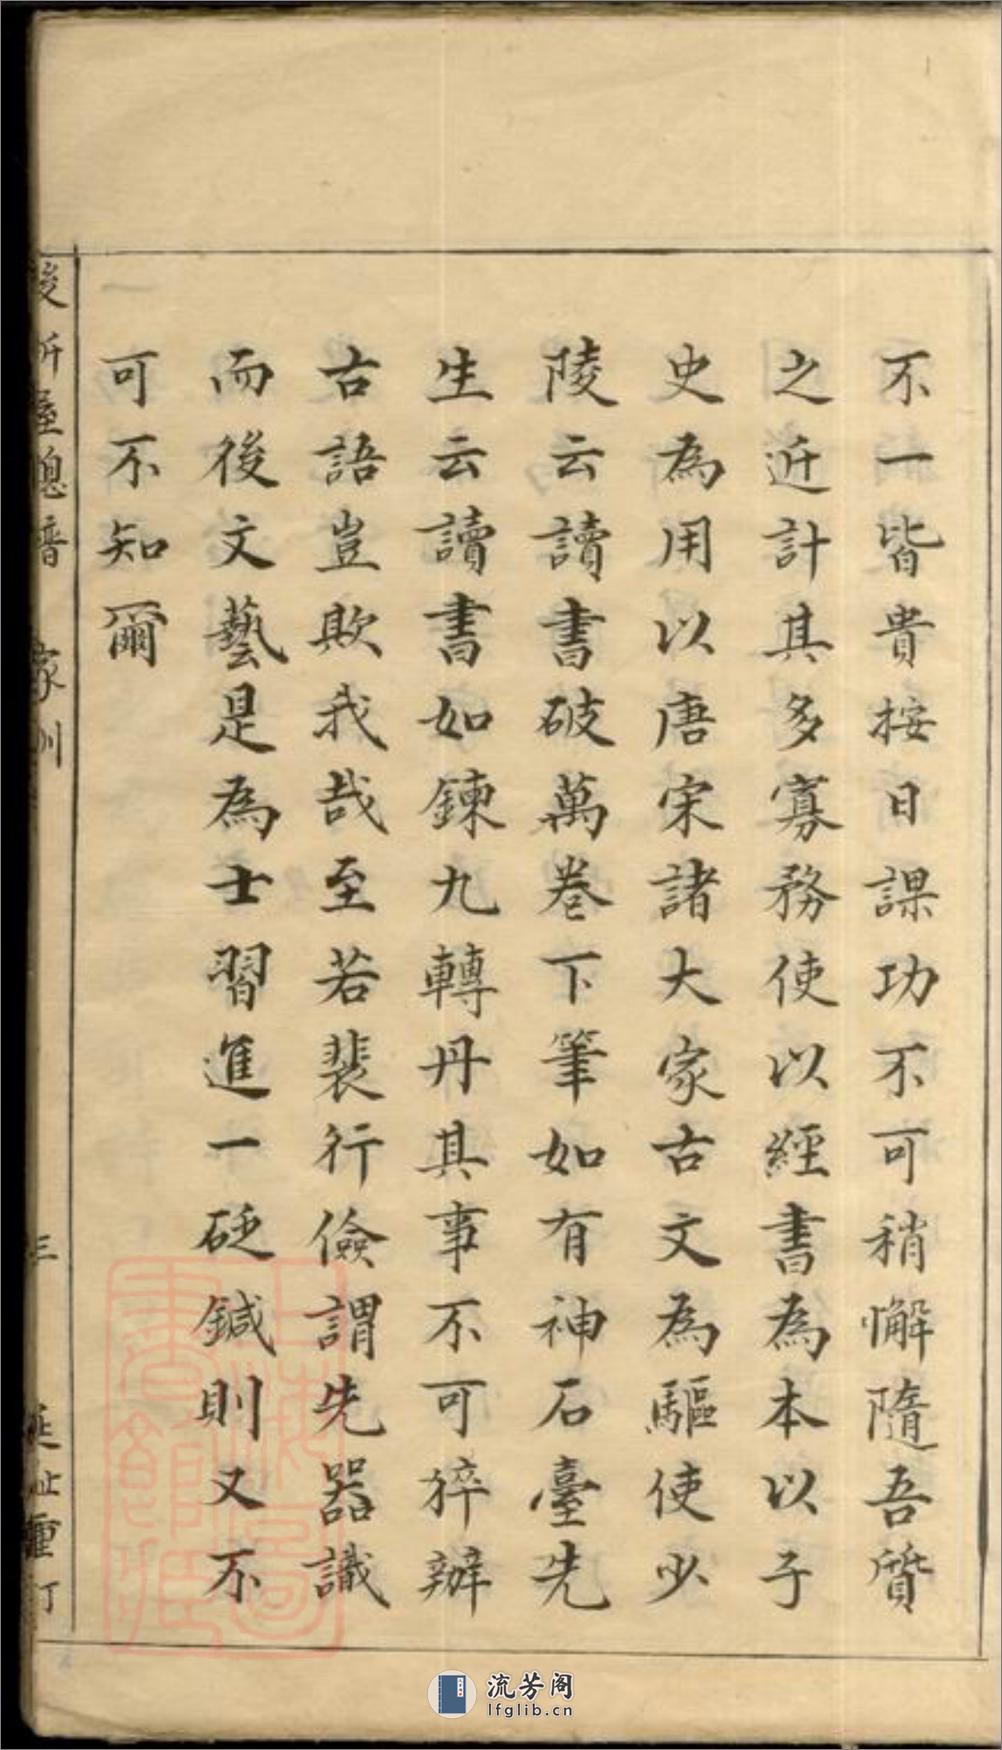 不一皆貴按日課功不可稍懈隨吾質
之近計其多寡務使以經書為本以子
史為用以唐宋諸大家古文為驅使少
陵云讀書破萬卷下筆如有神石臺先
生云讀書如鍊九轉丹其事不可猝辦
古語豈欺我哉至若裴行儉謂先器識
而後文藝是為士習進一砭鍼則又不
可不知爾
家訓
三
流芳阁
lfglib.cn